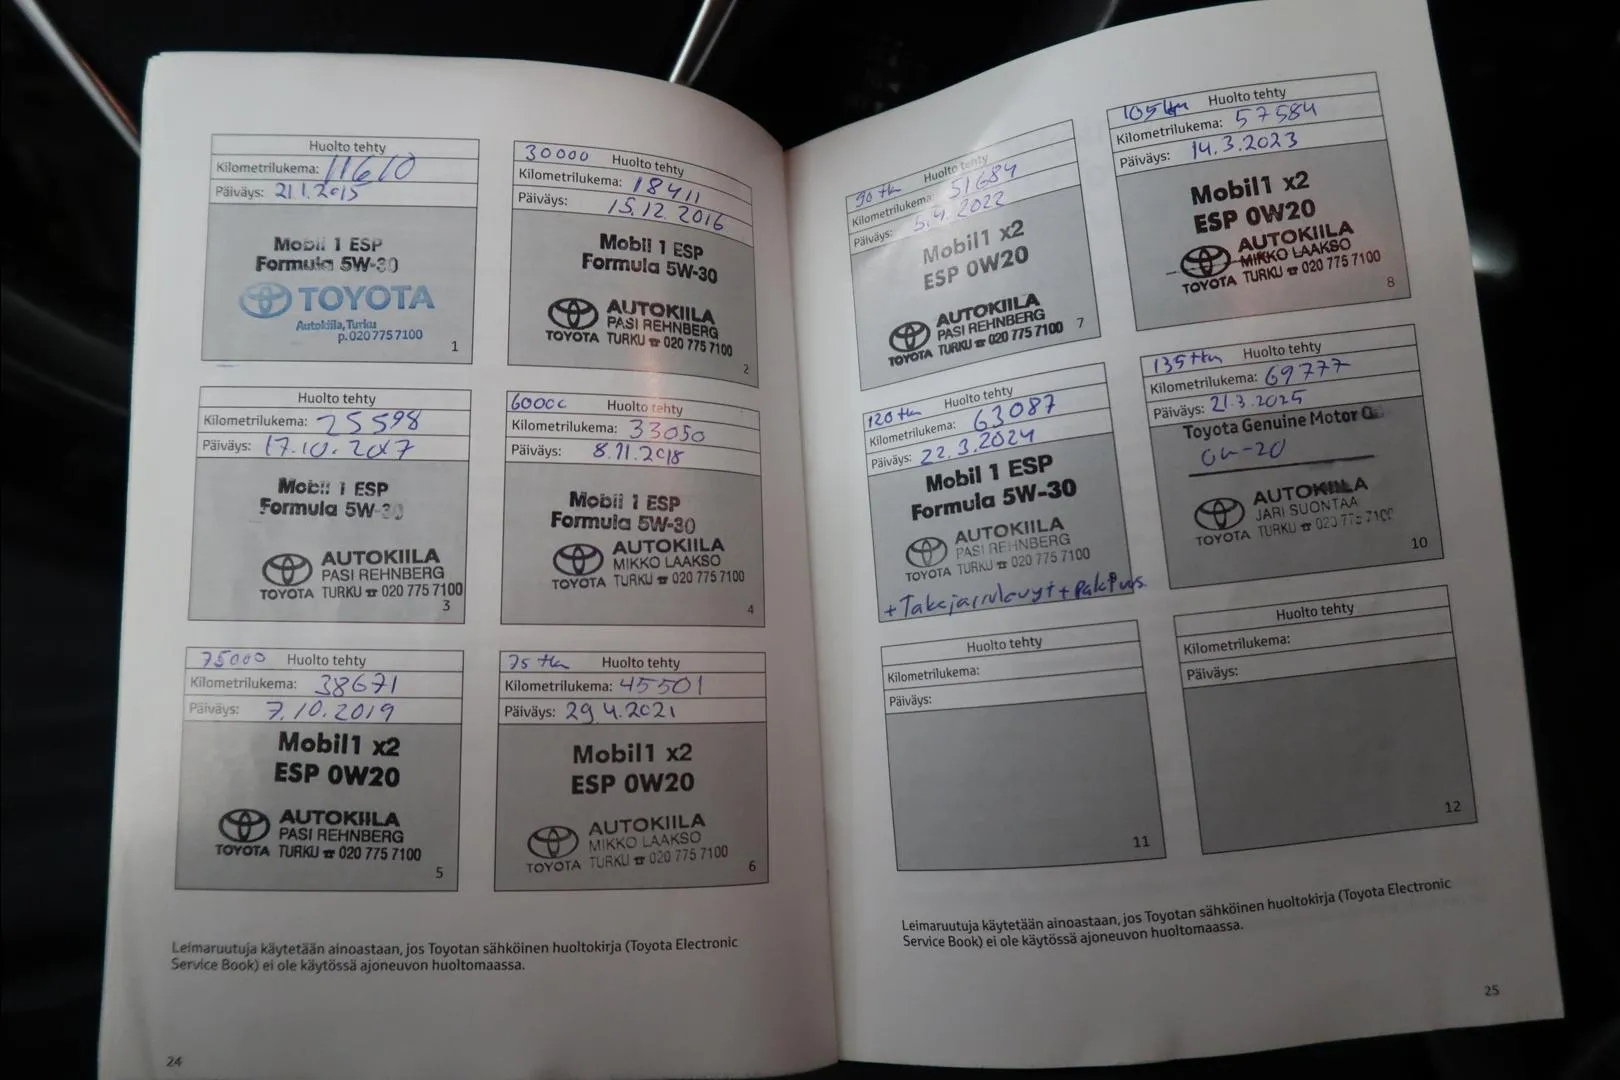 Huolto tehty
Kilometrilukema: 11610
Päiväys: 21.1.2015
Mobil 1 ESP
Formula 5W-30
TOYOTA
Autokiila, Turku
p. 020 775 7100
1
30000 Huolto tehty
Kilometrilukema: 18411
Päiväys: 15.12.2016
Mobil 1 ESP
Formula 5W-30
AUTOKIILA
PASI REHNBERG
TOYOTA TURKU ☎ 020 775 7100
2
Huolto tehty
Kilometrilukema: 25598
Päiväys: 17.10.2017
Mobil 1 ESP
Formula 5W-30
AUTOKIILA
PASI REHNBERG
TOYOTA TURKU ☎ 020 775 7100
3
60000 Huolto tehty
Kilometrilukema: 33050
Päiväys: 8.11.2018
Mobil 1 ESP
Formula 5W-30
AUTOKIILA
MIKKO LAAKSO
TOYOTA TURKU ☎ 020 775 7100
4
75000 Huolto tehty
Kilometrilukema: 38671
Päiväys: 7.10.2019
Mobil1 x2
ESP 0W20
AUTOKIILA
PASI REHNBERG
TOYOTA TURKU ☎ 020 775 7100
5
75 tkm Huolto tehty
Kilometrilukema: 45501
Päiväys: 29.4.2021
Mobil1 x2
ESP 0W20
AUTOKIILA
MIKKO LAAKSO
TOYOTA TURKU ☎ 020 775 7100
6
Leimaruutuja käytetään ainoastaan, jos Toyotan sähköinen huoltokirja (Toyota Electronic
Service Book) ei ole käytössä ajoneuvon huoltomaassa.
24
90 tkm Huolto tehty
Kilometrilukema: 51684
Päiväys: 5.4.2022
Mobil1 x2
ESP 0W20
AUTOKIILA
PASI REHNBERG
TOYOTA TURKU ☎ 020 775 7100
7
105 tkm Huolto tehty
Kilometrilukema: 57584
Päiväys: 14.3.2023
Mobil1 x2
ESP 0W20
AUTOKIILA
MIKKO LAAKSO
TOYOTA TURKU ☎ 020 775 7100
8
120 tkm Huolto tehty
Kilometrilukema: 63087
Päiväys: 22.3.2024
Mobil 1 ESP
Formula 5W-30
AUTOKIILA
PASI REHNBERG
TOYOTA TURKU ☎ 020 775 7100
+ Takajarrulevyt + palat uus
135 tkm Huolto tehty
Kilometrilukema: 69777
Päiväys: 21.3.2025
Toyota Genuine Motor
0W-20
AUTOKIILA
JARI SUONTAA
TOYOTA TURKU ☎ 020 775 7100
10
Huolto tehty
Kilometrilukema:
Päiväys:
11
Huolto tehty
Kilometrilukema:
Päiväys:
12
Leimaruutuja käytetään ainoastaan, jos Toyotan sähköinen huoltokirja (Toyota Electronic
Service Book) ei ole käytössä ajoneuvon huoltomaassa.
25